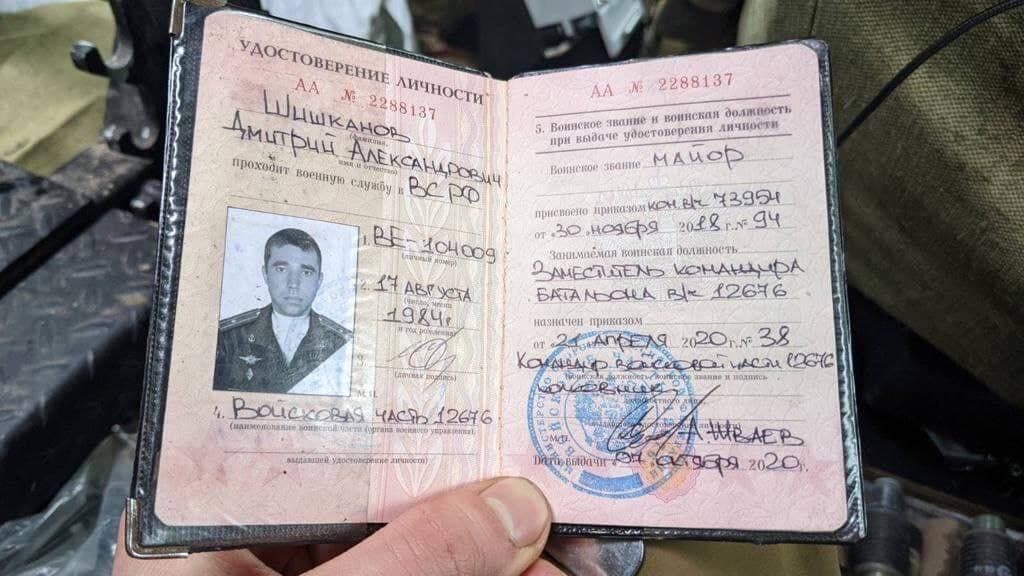 УДОСТОВЕРЕНИЕ ЛИЧНОСТИ
АА № 2288137
Шишканов
Дмитрий Александрович
имя и отчество
проходит военную службу в ВС РФ
1. ВЕ-104009
(личный номер)
2. 17 августа
1984г
и год рождения)
3.
(личная подпись)
М.П.
4. Войсковая часть 12676
(наименование воинской части (органа военного управления),
выдавшей удостоверение личности)
АА № 2288137
5. Воинское звание и воинская должность
при выдаче удостоверения личности
Воинское звание майор
присвоено приказом ком. в/ч 73954
от 30 ноября 2018 г. № 94
Занимаемая воинская должность
Заместитель командира
батальона в/ч 12676
назначен приказом
от 21 апреля 2020 г. № 38
Командир войсковой части 12676
А. Шваев
Дата выдачи октября 2020 г.